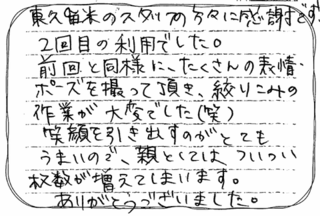 東久留米のスタッフの方々に感謝です
2回目の利用でした。
前回と同様に、たくさんの表情・
ポーズを撮って頂き、絞りこみの
作業が大変でした(笑)
笑顔を引き出すのがとても
うまいので、親としては ついつい
枚数が増えてしまいます。
ありがとうございました。